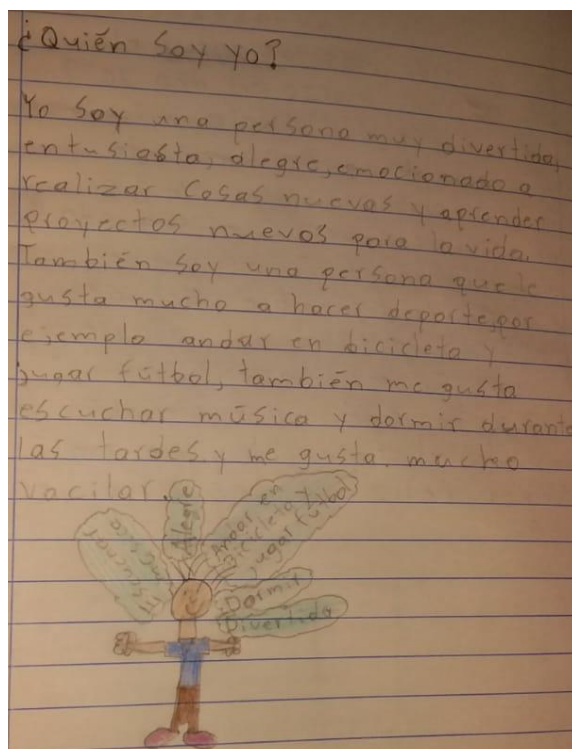 ¿Quién soy yo?
Yo soy una persona muy divertida,
entusiasta, alegre, emocionado a
realizar cosas nuevas y aprender
proyectos nuevos para la vida.
También soy una persona que le
gusta mucho a hacer deporte, por
ejemplo andar en bicicleta y
jugar fútbol, también me gusta
escuchar música y dormir durante
las tardes y me gusta. mucho
vacilar.
Escuchar
música
Alegre
Andar en
bicicleta y
jugar fútbol
Dormir
Divertido